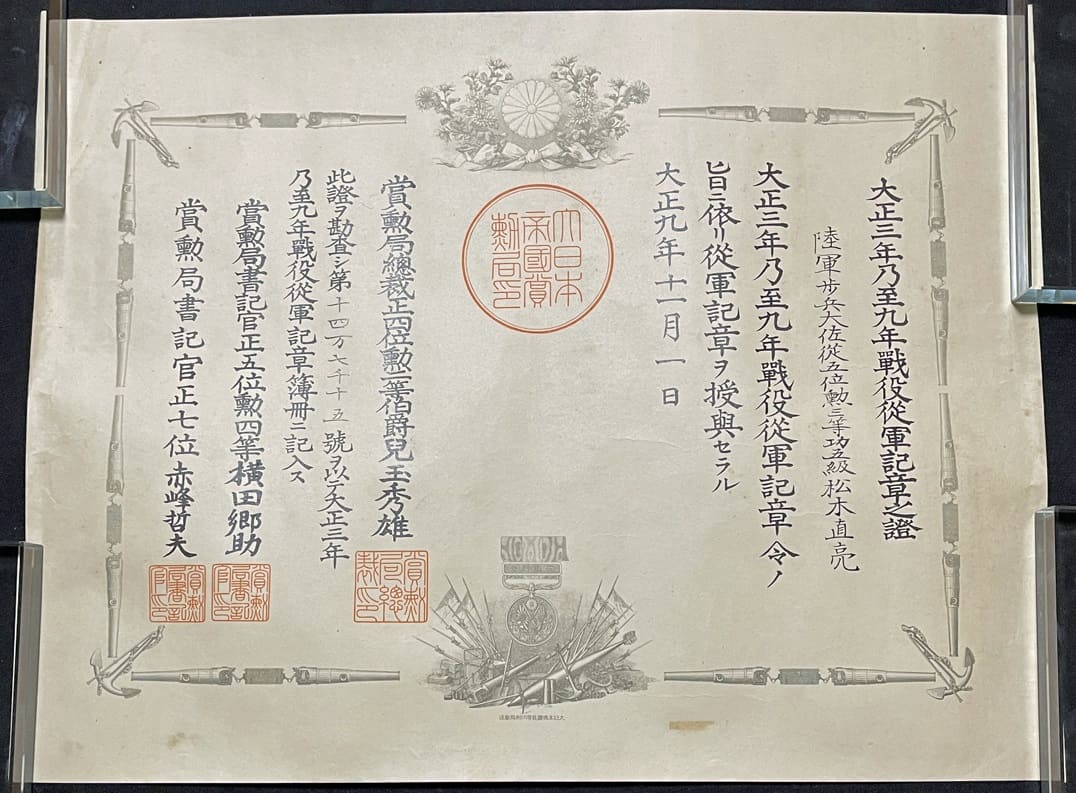 大正三年乃至九年戰役從軍記章之證
陸軍步兵大佐從五位勲三等功五級松木直亮
大正三年乃至九年戰役從軍記章令ノ
旨ニ依リ從軍記章ヲ授與セラル
大正九年十一月一日
大日本
帝國賞
勲局印
賞勲局總裁正四位勲二等伯爵兒玉秀雄
賞勲
局總
裁印
此證ヲ勘査シ第十四万七千十五號ヲ以テ大正三年
乃至九年戰役從軍記章簿冊ニ記入ス
賞勲局書記官正五位勲四等橫田鄉助
賞勲
局書記
官印
賞勲局書記官正七位赤峰哲夫
賞勲
局書記
官印